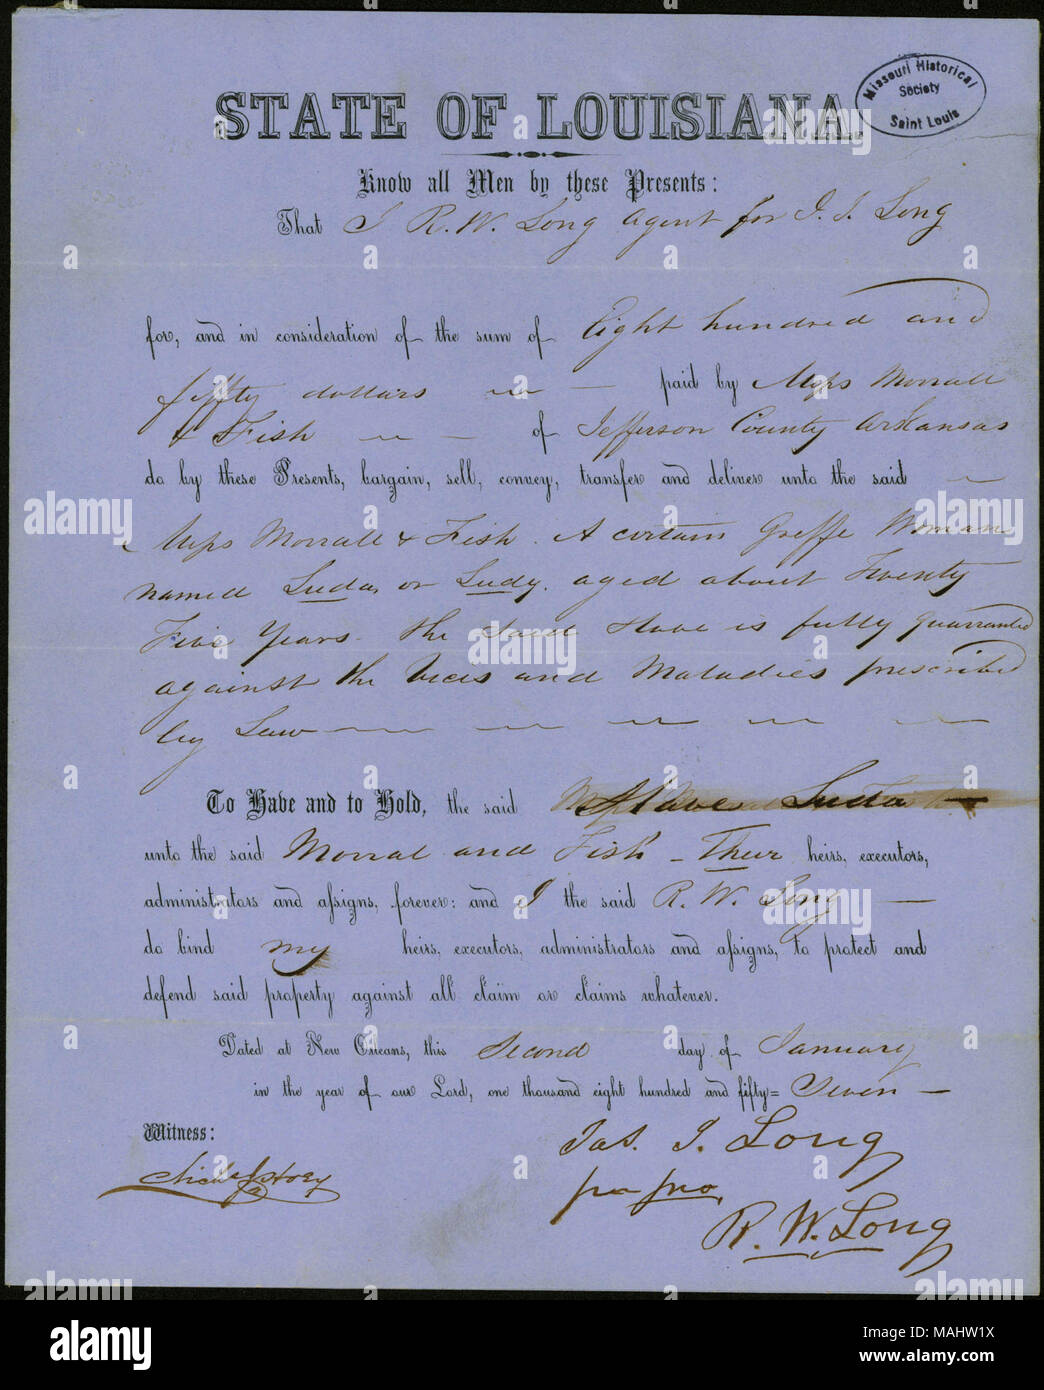 STATE OF LOUISIANA.
Missouri Historical
Society
Saint Louis
Know all Men by these Presents:
That I R. W. Long agent for J. J. Long
for, and in consideration of the sum of Eight hundred and
fiffty dollars paid by Messrs Morrall
& Fish of Jefferson County Arkansas
do by these Presents, bargain, sell, convey, transfer and deliver unto the said
Messrs Morrall & Fish. A certain Greffe Woman
named Luda, or Ludy. aged about Twenty
Five Years. the Said Slave is fully guarranted
against the Vices and Maladies prescribed
by Law
To Have and to Hold, the said Slave Luda
unto the said Morral and Fish - Their heirs, executors,
administrators and assigns, forever: and I the said R. W. Long
do bind my heirs, executors, administrators and assigns, to protect and
defend said property against all claim or claims whatever.
Dated at New Orleans, this Second day of January
in the year of our Lord, one thousand eight hundred and fifty= Seven
Witness:
Jas. J. Long
per pro,
R. W. Long
alamy
a
Image ID: MAHW1X
www.alamy.com